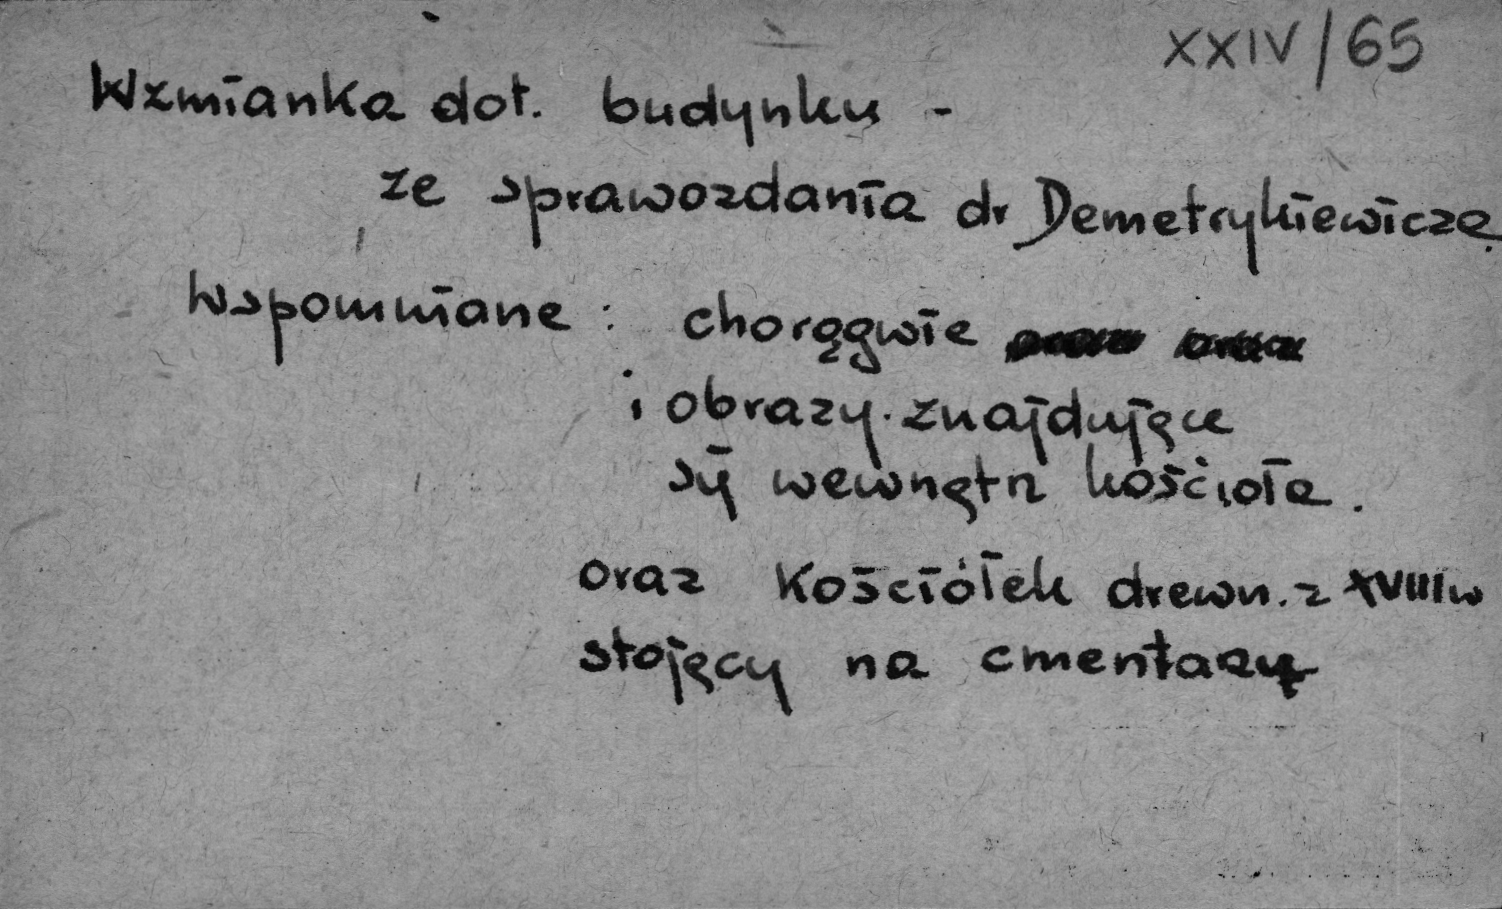 XXIV/65
Wzmianka dot. budynku -
ze sprawozdania dr Demetrykiewicza
Wspomniane : chorągwie
i obrazy. znajdujące
się wewnątrz kościoła.
oraz Kościółek drewn. z XVIII w
stojący na cmentarzu